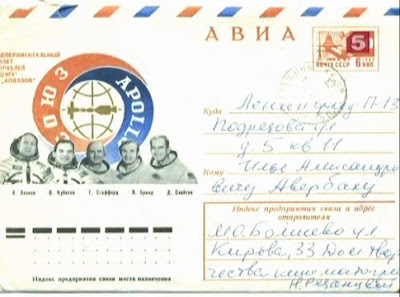 АВИА
СОЮЗ
APOLLO
5
ПОЧТА СССР 6 КОП
Куда Ленинград П-13
Подрезова ул
д. 5 кв 11
Кому Илье Александро
вичу Авербаху
А. Леонов В. Кубасов Т. Стаффорд В. Бранд Д. Слейтон
Индекс предприятия связи и адрес
отправителя
М.О. Болшево ул
Кирова, 33 Дом твор
чества кинематогра
Н. Рязанцевой
Индекс предприятия связи места назначения